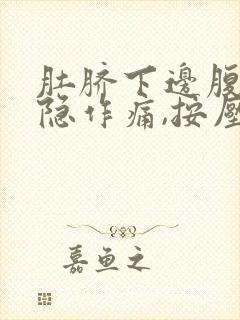 肚脐下边腹
隐作痛,按压
嘉鱼之